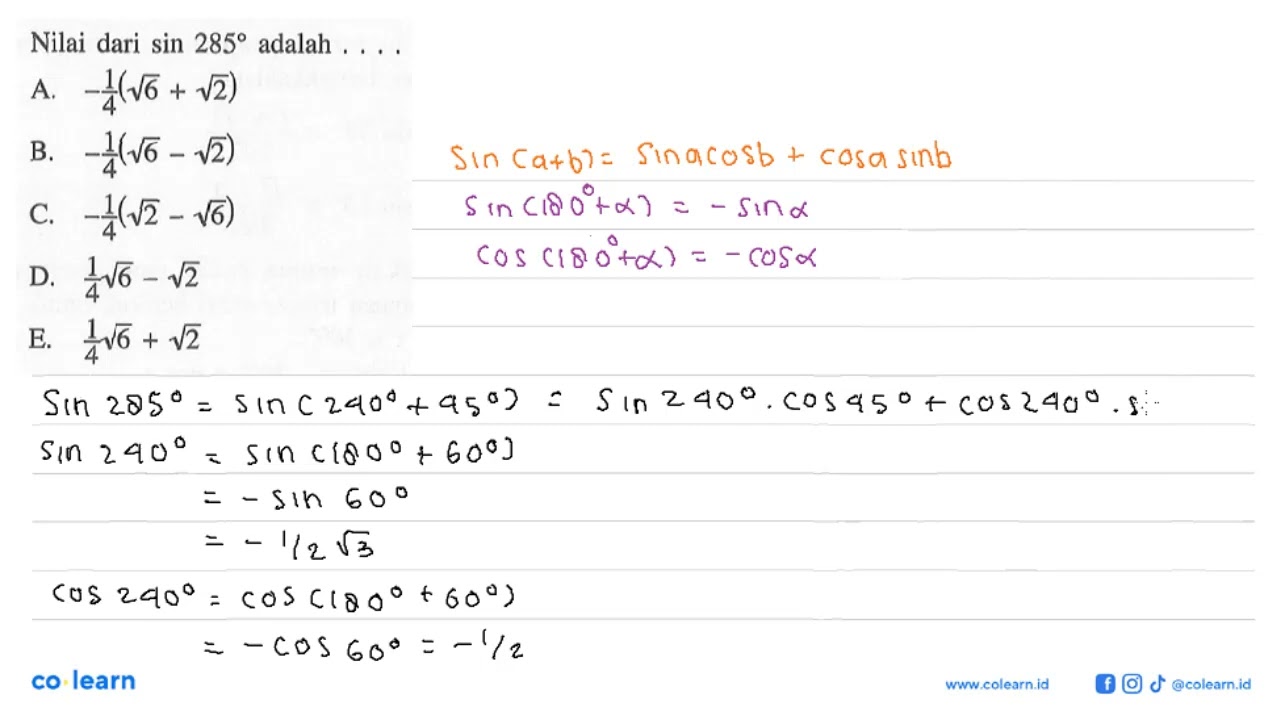 Nilai dari sin 285° adalah . . . .
A. -1/4(√6 + √2)
B. -1/4(√6 - √2)
C. -1/4(√2 - √6)
D. 1/4√6 - √2
E. 1/4√6 + √2
sin(a+b) = sin a cos b + cos a sin b
sin(180°+α) = -sin α
cos(180°+α) = -cos α
Sin 285° = sin(240° + 45°) = sin 240° . cos 45° + cos 240° . s
sin 240° = sin(180° + 60°)
= - sin 60°
= - 1/2 √3
cos 240° = cos(180° + 60°)
= - cos 60° = - 1/2
co·learn
www.colearn.id
@colearn.id